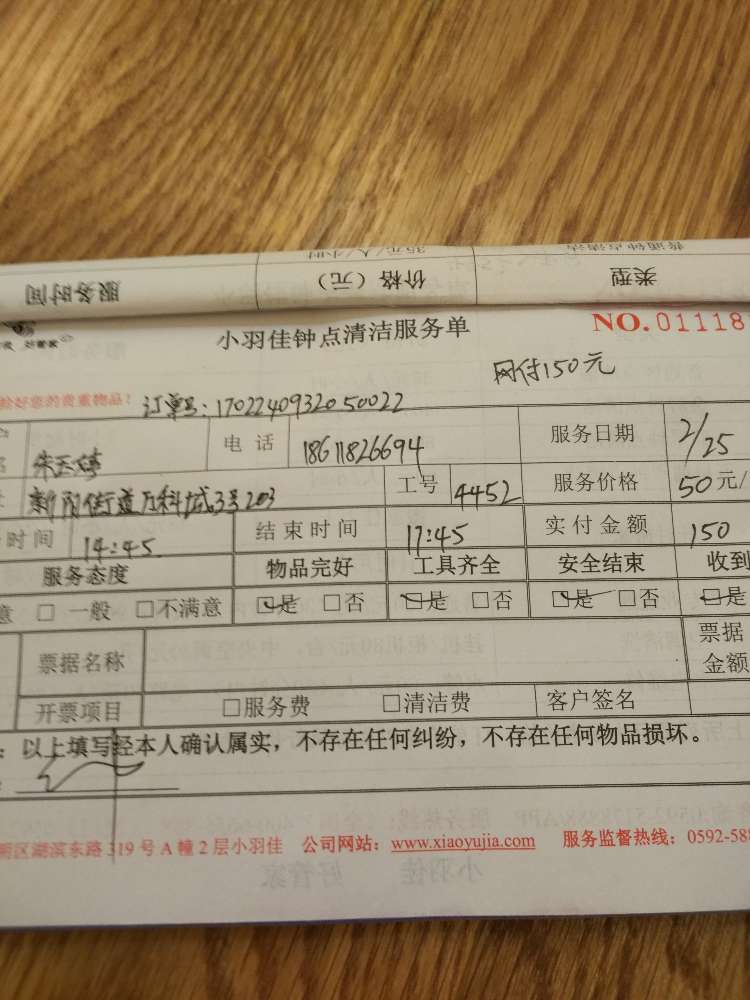 普通钟点清洁 35元/人/小时
类型 价格（元） 服务时间
好管家
小羽佳钟点清洁服务单 NO.01118
网付150元
您的贵重物品！ 订单号：1702240932050022
电话 18611826694 服务日期 2/25
新阳街道万科城3号203 工号 4452 服务价格 50元/
时间 14:45 结束时间 17:45 实付金额 150
服务态度 物品完好 工具齐全 安全结束 收到
意 □ 一般 □不满意 ☑是 □否 ☑是 □否 ☑是 □否 ☑是
票据名称 票据金额
开票项目 □服务费 □清洁费 客户签名
：以上填写经本人确认属实，不存在任何纠纷，不存在任何物品损坏。
区湖滨东路319号A幢2层小羽佳 公司网站：www.xiaoyujia.com 服务监督热线：0592-588
小羽佳 好管家